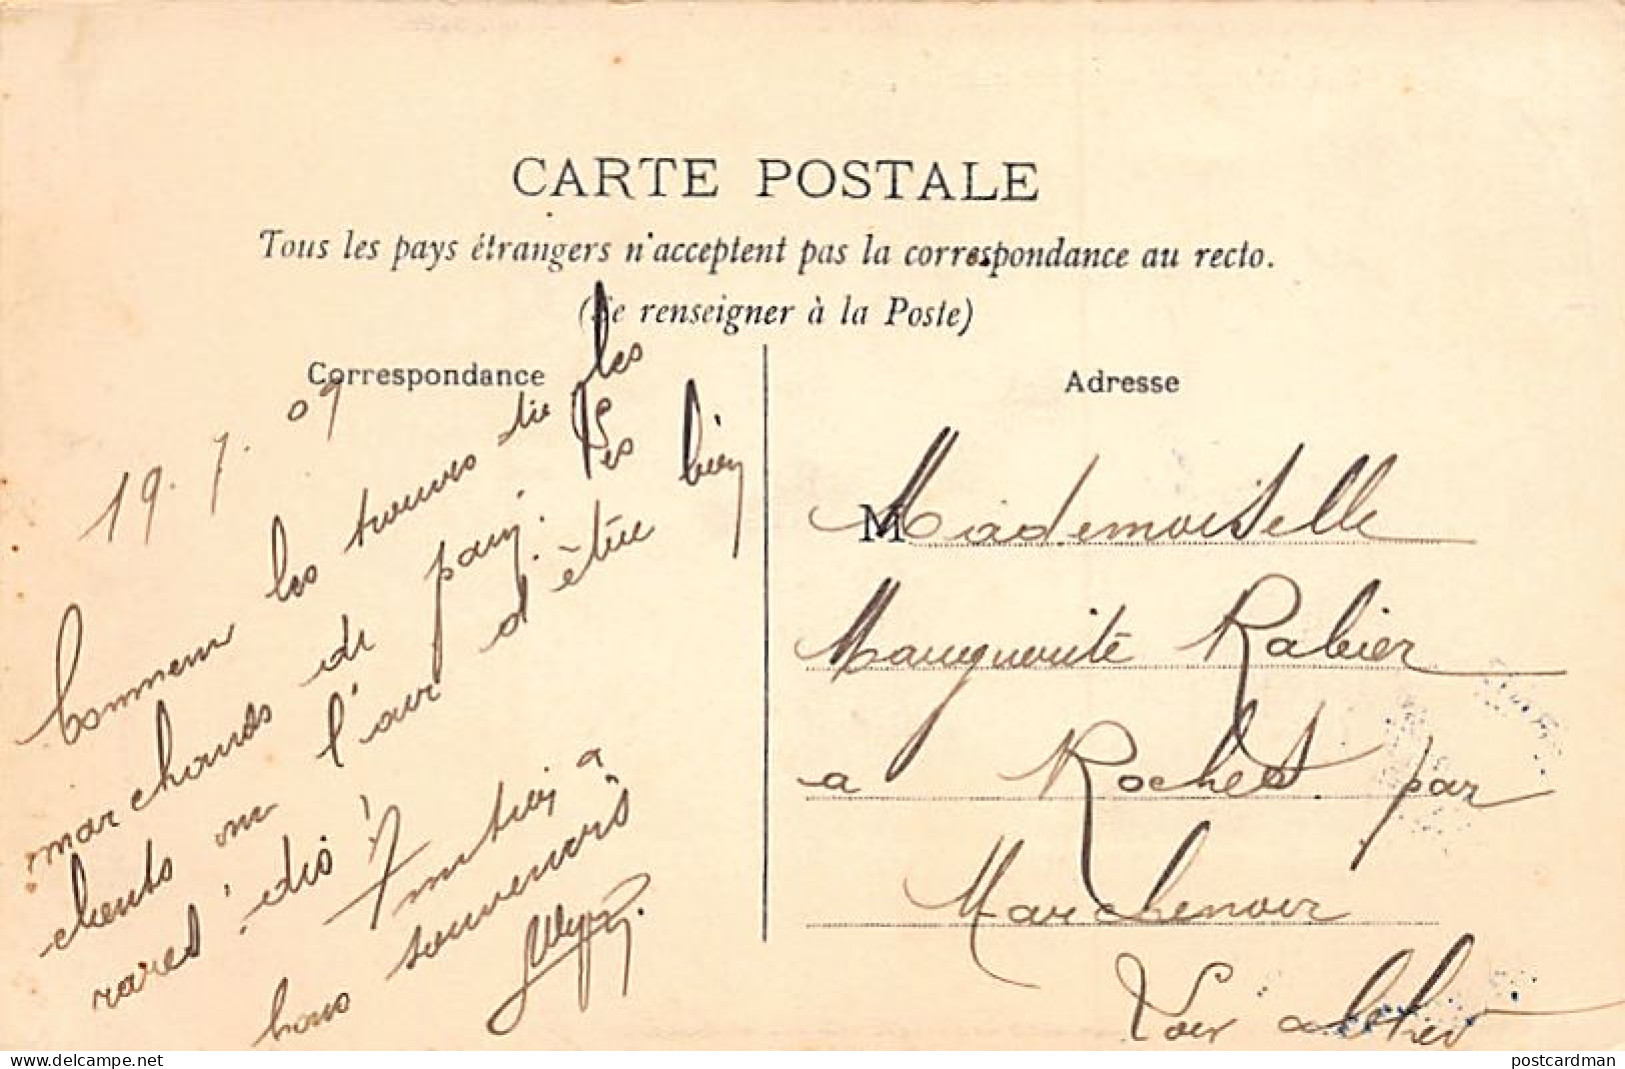 CARTE POSTALE
Tous les pays étrangers n'acceptent pas la correspondance au recto.
(Se renseigner à la Poste)
Correspondance
19. 7. 09
Comment les trouves tu les
marchands de pain. Les
clients ont l'air d'être bien
rares! dis?
Amitiés a
bons souvenirs
Adresse
Mademoiselle
Marguerite Rabier
a Roches par
Marchenoir
Loir et Cher
postcardman